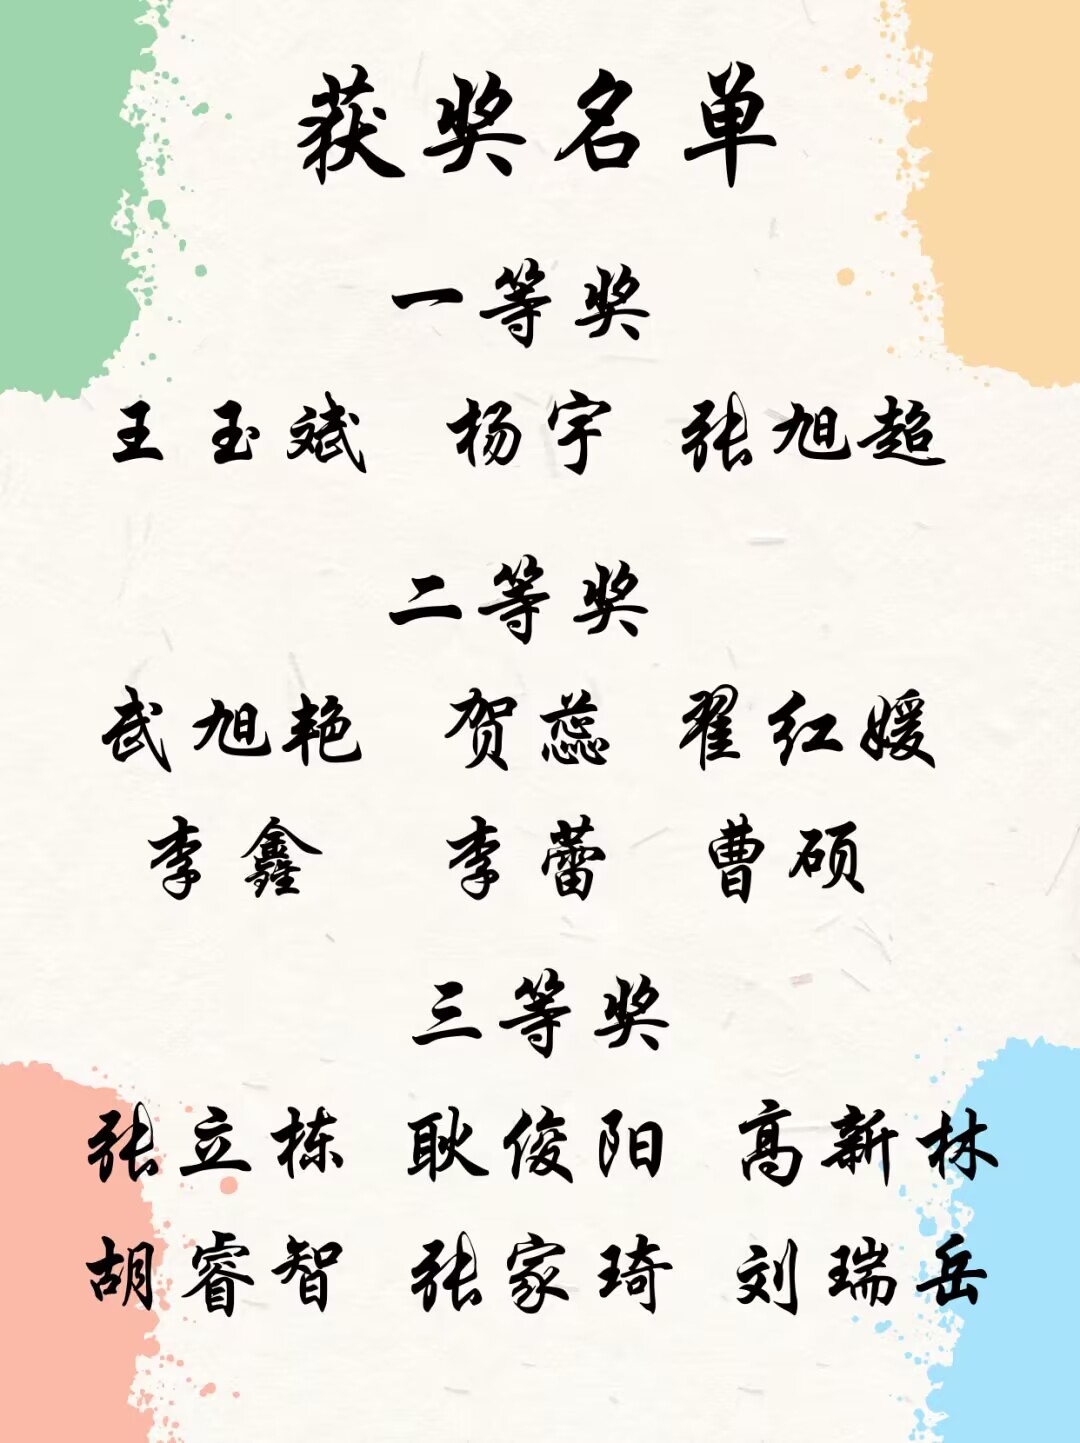 获奖名单
一等奖
王玉斌 杨宇 张旭超
二等奖
武旭艳 贺蕊 翟红媛
李鑫 李蕾 曹硕
三等奖
张立栋 耿俊阳 高新林
胡睿智 张家琦 刘瑞岳